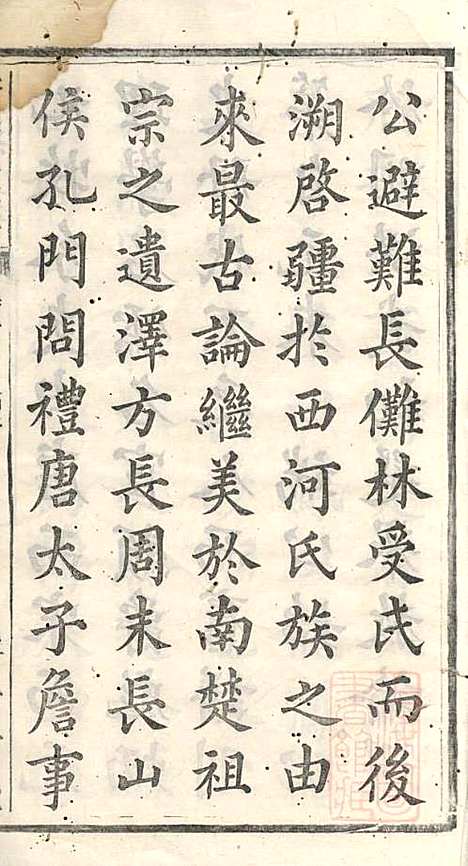 公避難長儺林受氏而後
溯啓疆於西河氏族之由
來最古論繼美於南楚祖
宗之遺澤方長周末長山
侯孔門問禮唐太子詹事